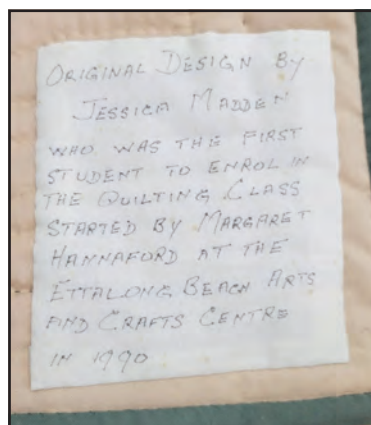 ORIGINAL DESIGN BY
JESSICA MADDEN
WHO WAS THE FIRST
STUDENT TO ENROL IN
THE QUILTING CLASS
STARTED BY MARGARET
HANNAFORD AT THE
ETTALONG BEACH ARTS
AND CRAFTS CENTRE
IN 1990